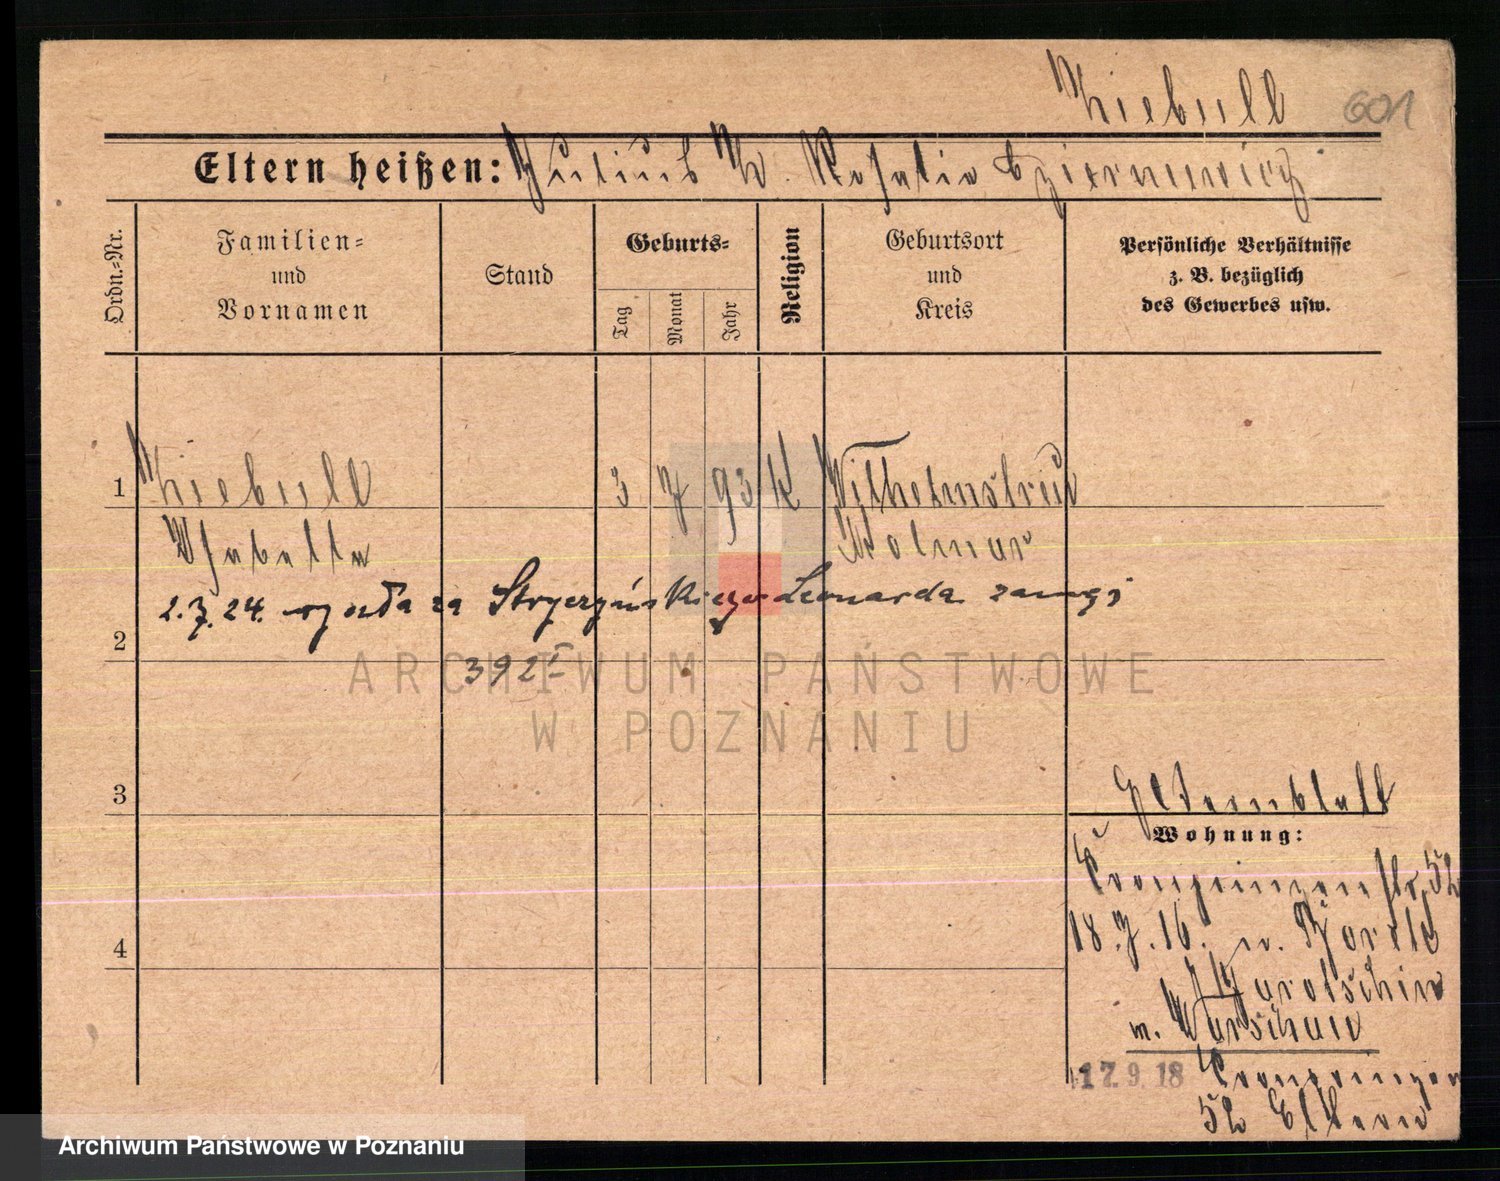 Kiebull 601
Eltern heißen: Julius K. Rosalie Czierniewicz
Ordn.=Nr.
Familien=
und
Vornamen
Stand
Geburts=
Tag
Monat
Jahr
Religion
Geburtsort
und
Kreis
Persönliche Verhältnisse
z. B. bezüglich
des Gewerbes usw.
1 Kiebull 3 7 93 K Wilhelmstreu
Isabella Kolmar
2.7.24. wyszła za Stryczyńskiego Leonarda zamąż
2
392 I
ARCHIWUM PAŃSTWOWE
W POZNANIU
3
Elternblatt
Wohnung:
Kronprinzenstr. 52
18.7.16. n.
4
Jarotschin
n. Warschau
17.9.18 Kronprinzen
52 Eltern
Archiwum Państwowe w Poznaniu